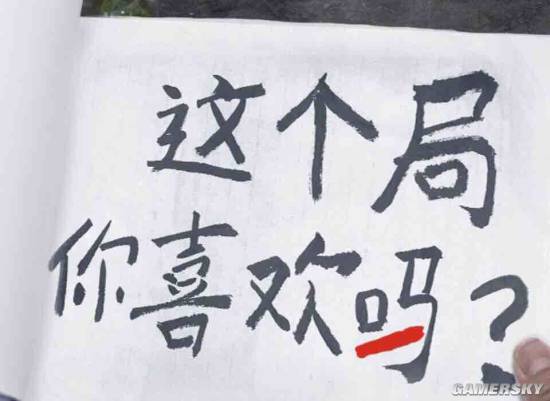 这个局
你喜欢吗?
GAMERSKY